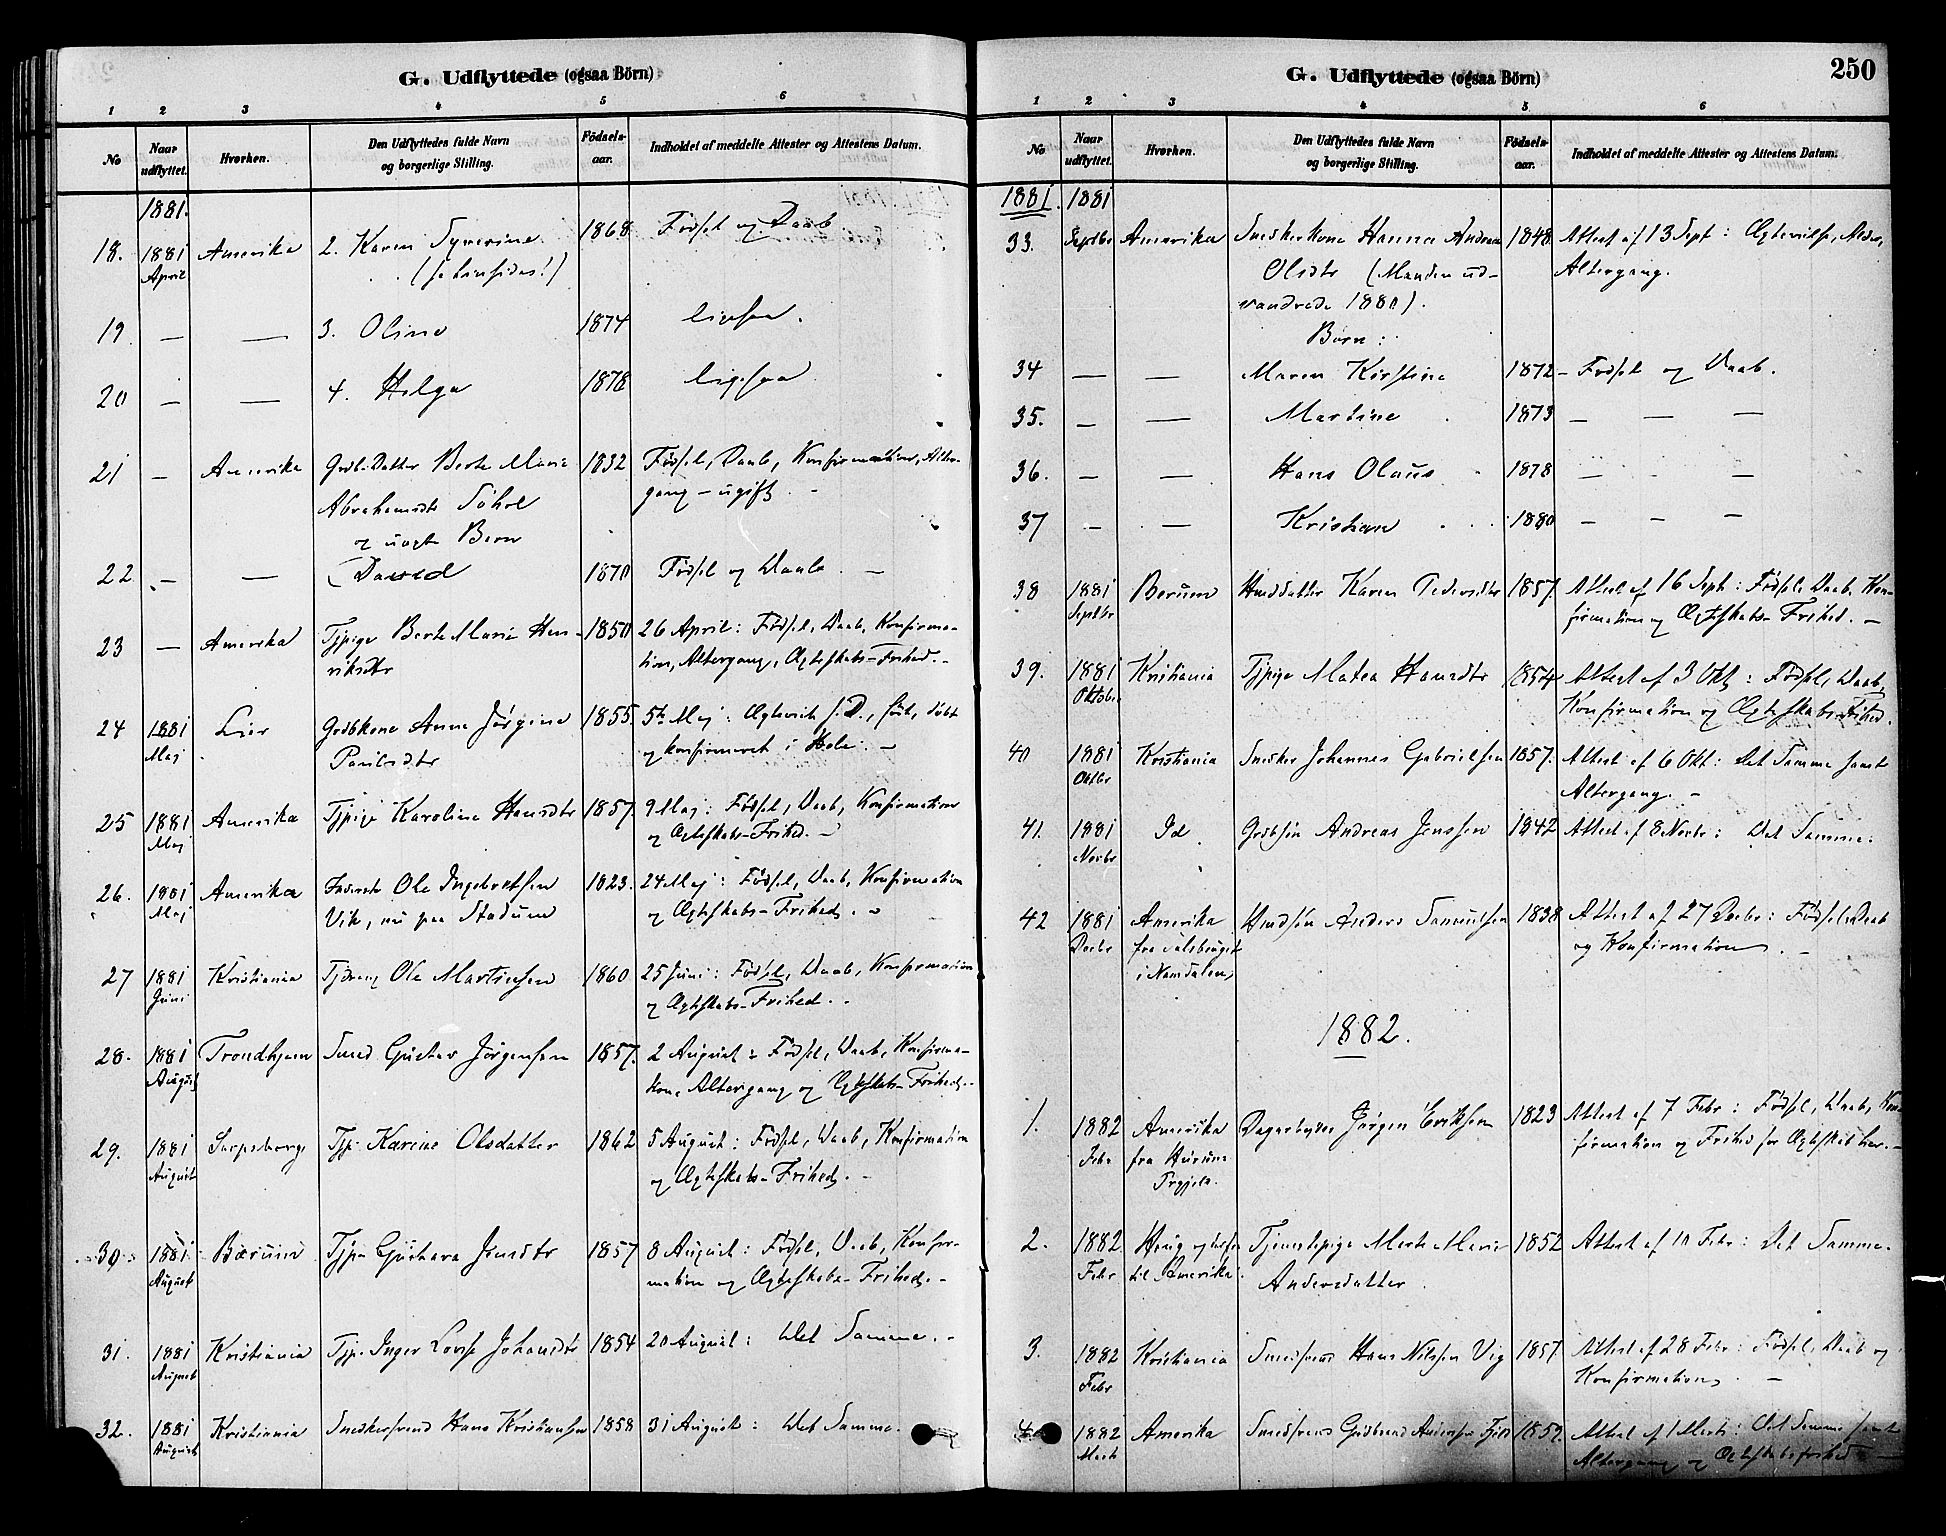 G. Udflyttede (ogsaa Börn)
1 2 3 4 5 6
No
Naar udflyttet.
Hvorhen.
Den Udflyttedes fulde Navn og borgerlige Stilling.
Födsels-aar.
Indholdet af meddelte Attester og Attestens Datum.
1881.
18. 1881 April Amerika 2. Karen Syverine 1868 Fødsel og Daab
19 — — 3. Oline 1874 ligesaa.
20 — — 4. Helga 1878 ligesaa
21 — Amerika Grdb. Datter Berte Marie 1832 Fødsel, Daab, Konfirmation, Alter-
Abrahamsdtr Søhol gang – ugift. –
og uægte Børn
22 — — David 1870 Fødsel og Daab. —
23 — Amerika Tjpige Berte Marie Hen- 1850 26 April: Fødsel, Daab, Konfirma-
riksdtr tion, Altergang, Ægteskabs-Frihed. –
24 1881 Maj Lier Grdbkone Anne Jørgine 1855. 5te Maj: Ægteviet s. D., født, døbt
Paulsdtr og konfirmeret i Hole. –
25 1881 Maj Amerika Tjpige Karoline Hansdtr 1857. 9 Maj: Fødsel, Daab, Konfirmation
og Ægteskabs-Frihed. –
26. 1881 Maj Amerika Inderste Ole Ingebretsen 1823. 24 Maj: Fødsel, Daab, Konfirmation
Vik, nu paa Stadum og Ægteskabs-Frihed. –
27 1881 Juni Kristiania Tjdreng Ole Martinsen 1860 25 Juni: Fødsel, Daab, Konfirmation
og Ægteskabs-Frihed. –
28. 1881 August Trondhjem Smed Gustav Jørgensen 1857. 2 August: Fødsel, Daab, Konfirma-
tion, Altergang og Ægteskabs-Frihed. –
29. 1881 August Sarpsborg Tjp. Karine Olsdatter 1862 5 August: Fødsel, Daab, Konfirmation
og Ægteskabs-Frihed. –
30. 1881 August Bærum Tjp. Gustava Jensdtr 1857 8 August: Fødsel, Daab, Konfir-
mation og Ægteskabs-Frihed. –
31. 1881 August Kristiania Tjp. Inger Lovise Johansdtr 1854 20 August: Det Samme. –
32. 1881 August Kristiania Snedkersvend Hans Kristiansen 1858 31 August: Det Samme.
G. Udflyttede (ogsaa Börn)
250
1 2 3 4 5 6
No
Naar udflyttet.
Hvorhen.
Den Udflyttedes fulde Navn og borgerlige Stilling.
Födsels-aar.
Indholdet af meddelte Attester og Attestens Datum.
1881. 1881
33. Septbr Amerika Snedkerkone Hanna Andrea 1848. Attest af 13 Sept: Ægtevielse, Alder,
Olsdtr (Manden ud- Altergang.
vandrede 1880).
Børn:
34 — — Maren Kirstine 1872 – Fødsel og Daab.
35. — — Martine 1873 — — —
36. — — Hans Olaus 1878 — — —
37 — — Kristian 1880 — — —
38 1881 Septbr Berum Husdatter Karen Pedersdtr 1857. Attest af 16 Sept: Fødsel, Daab, Kon-
firmation og Ægteskabs-Frihed. –
39. 1881 Oktobr Kristiania Tjpige Matea Hansdtr 1854 Attest af 3 Okt: Fødsel, Daab,
Konfirmation og Ægteskabs-Frihed.
40 1881 Oktbr Kristiania Snedker Johannes Gabrielsen 1857. Attest af 6 Okt: Det Samme samt
Altergang. –
41. 1881 Novbr Id Grdbsøn Andreas Jenssen 1842 Attest af 8 Novbr: Det Samme.
42 1881 Decbr Amerika Husdsøn Anders Samuelsen 1838 Attest af 27 Decbr: Fødsel, Daab
fra Salsbruget og Konfirmation. –
i Namdalen
1882.
1. 1882 Febr Amerika Dagarbeider Jørgen Eriksen 1823 Attest af 7 Febr: Fødsel, Daab, Kon-
fra Hurum firmation og Frihed for Ægteskab her. –
2. 1882 Febr Haug og derfra Tjenestepige Marte Marie 1852 Attest af 10 Febr: Det Samme.
til Amerika. Andersdatter.
3. 1882 Febr Kristiania Smedsvend Hans Nilsen Vig 1857. Attest af 28 Febr: Fødsel, Daab og
Konfirmation. –
4. 1882 Marts Amerika Smedsvend Gudbrand Andersen Fjeld 1859. Attest af 1 Marts: Det Samme samt
Altergang og Ægteskabsfrihed –